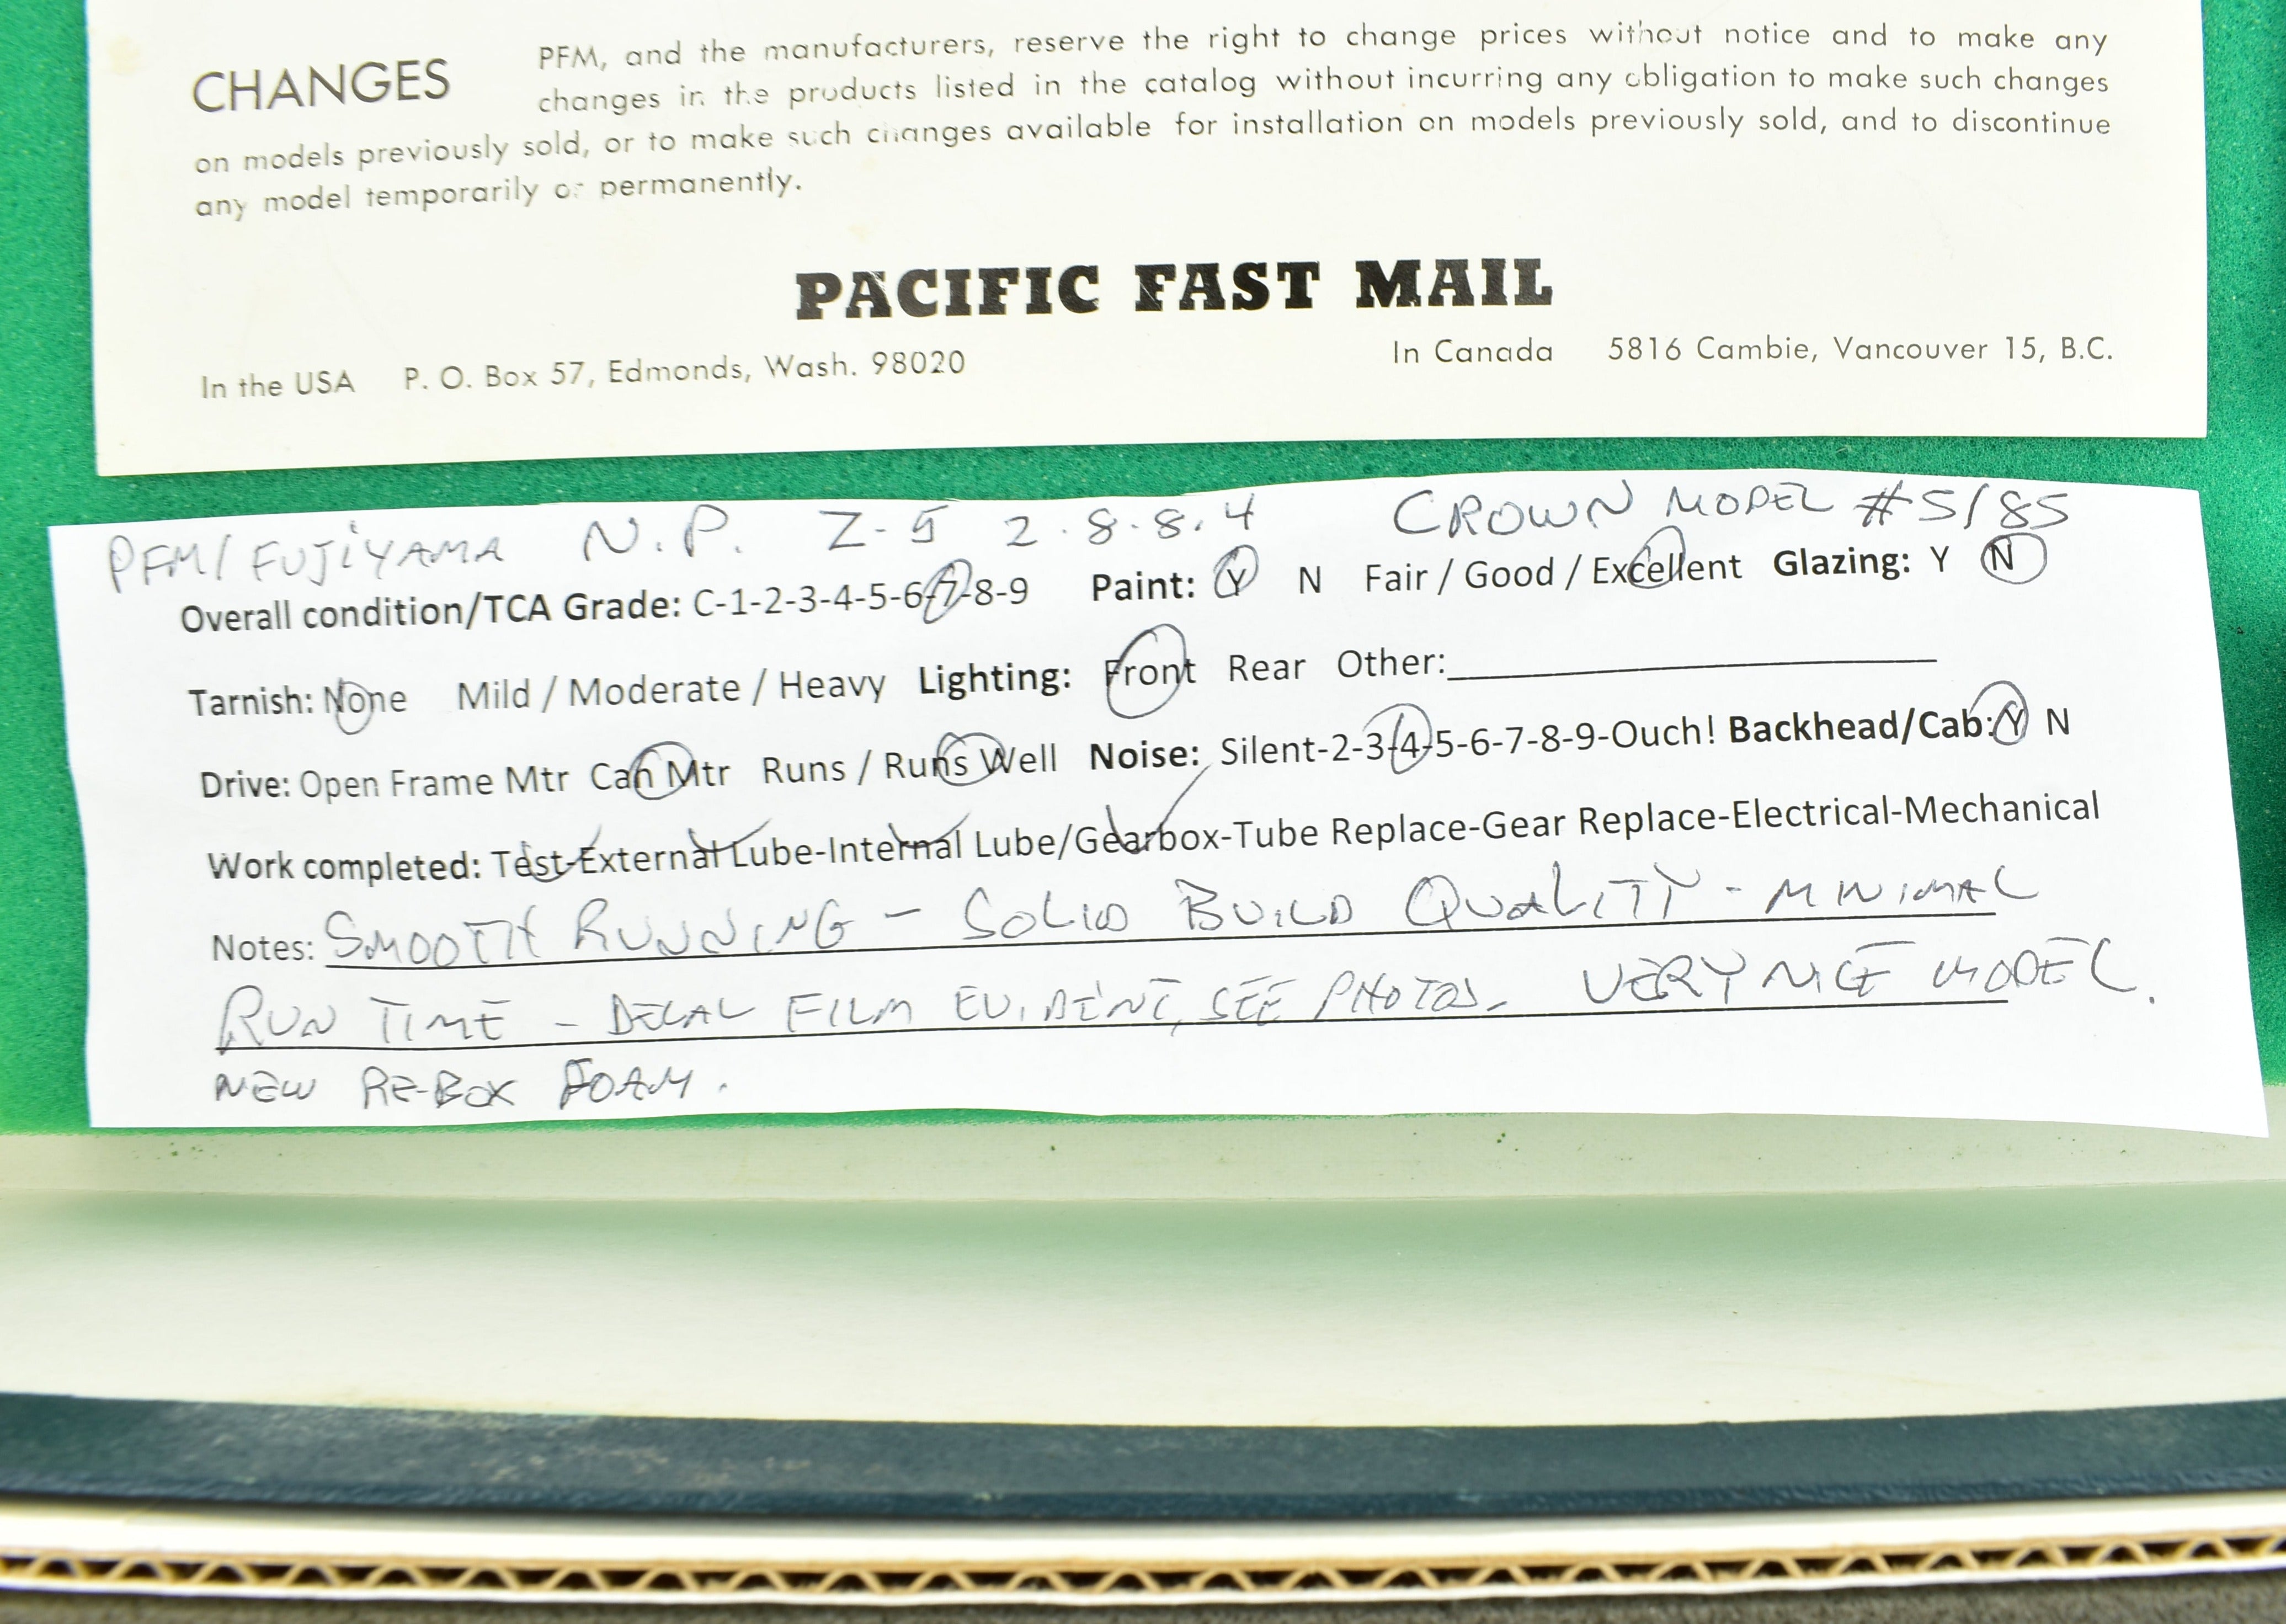 CHANGES PFM, and the manufacturers, reserve the right to change prices without notice and to make any
changes in the products listed in the catalog without incurring any obligation to make such changes
on models previously sold, or to make such changes available for installation on models previously sold, and to discontinue
any model temporarily or permanently.
PACIFIC FAST MAIL
In the USA P. O. Box 57, Edmonds, Wash. 98020 In Canada 5816 Cambie, Vancouver 15, B.C.
PFM/FUJIYAMA N.P. Z-5 2-8-8-4 CROWN MODEL #5/85
Overall condition/TCA Grade: C-1-2-3-4-5-6-7-8-9 Paint: Y N Fair / Good / Excellent Glazing: Y N
Tarnish: None Mild / Moderate / Heavy Lighting: Front Rear Other:
Drive: Open Frame Mtr Can Mtr Runs / Runs Well Noise: Silent-2-3-4-5-6-7-8-9-Ouch! Backhead/Cab: Y N
Work completed: Test-External Lube-Internal Lube/Gearbox-Tube Replace-Gear Replace-Electrical-Mechanical
Notes: SMOOTH RUNNING - SOLID BUILD QUALITY - MINIMAL
RUN TIME - DECAL FILM EVIDENT, SEE PHOTOS. VERY NICE MODEL.
NEW RE-BOX FOAM.